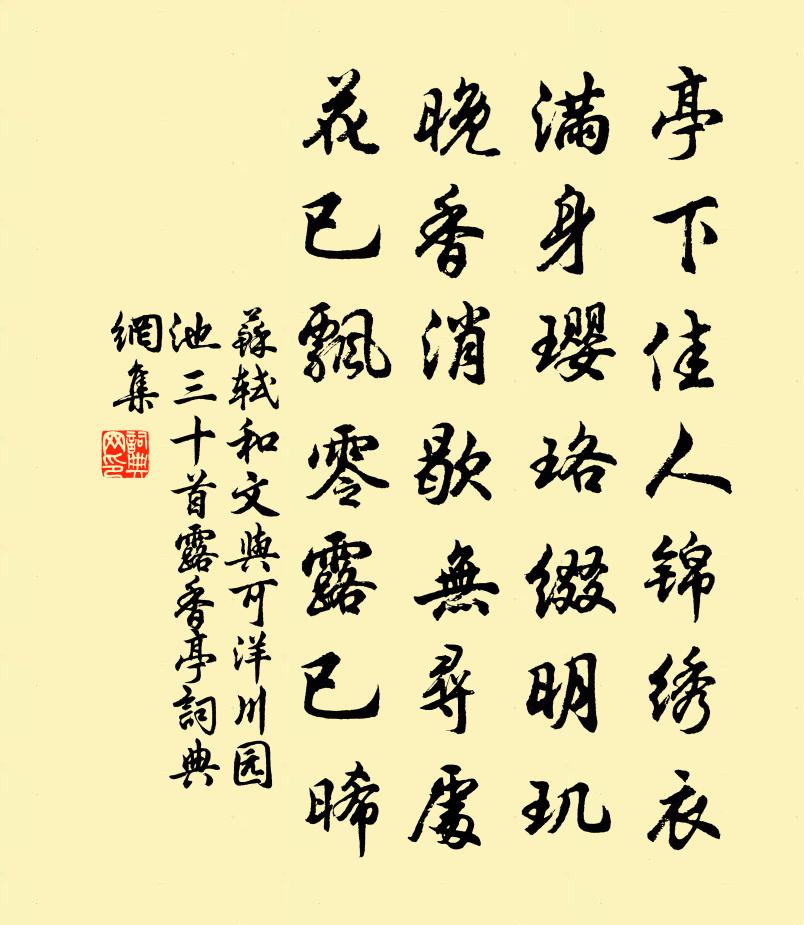 亭下佳人锦绣衣
满身璎珞缀明玑
晚香消歇無尋處
花已飄零露已晞
蘇轼和文與可洋川园
池三十首露香亭詞典
網集
詞典网印